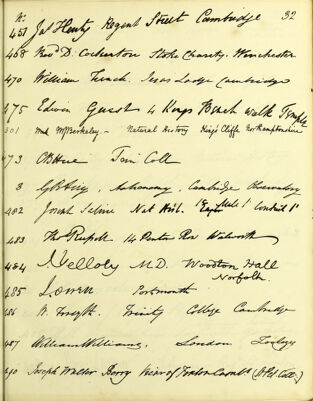 No. 32
451 Jas Henty Regent Street Cambridge
468 Revd D. Cockerton Stoke Charity, Winchester
470 William French. Jesus Lodge Cambridge
475 Edwin Guest 4 Kings Bench Walk Temple
301 Berkeley - Natural History King's Cliffe Northamptonshire
473 Trin Coll
8 G B Airy, Astronomy, Cambridge Observatory
482 Joseph Nat. Hist.
483 Thos Russell 14 Penton Row Walworth
484 J. Yelloly M.D. Woodton Hall
Norfolk
485 L. Owen Portsmouth
486 W. Forsyth. Trinity College Cambridge
487 William Williams. London Zoology
490 Joseph Walter Berry Vicar of